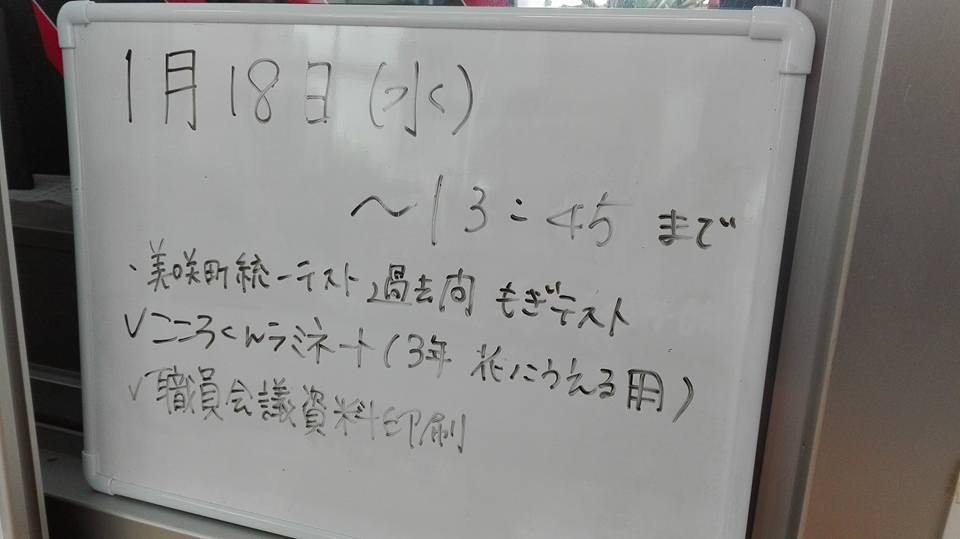 1月18日(水)
～13:45 まで
・美咲町統一テスト過去問 もぎテスト
✓こころくんラミネート(3年 花にうえる用)
✓職員会議資料印刷